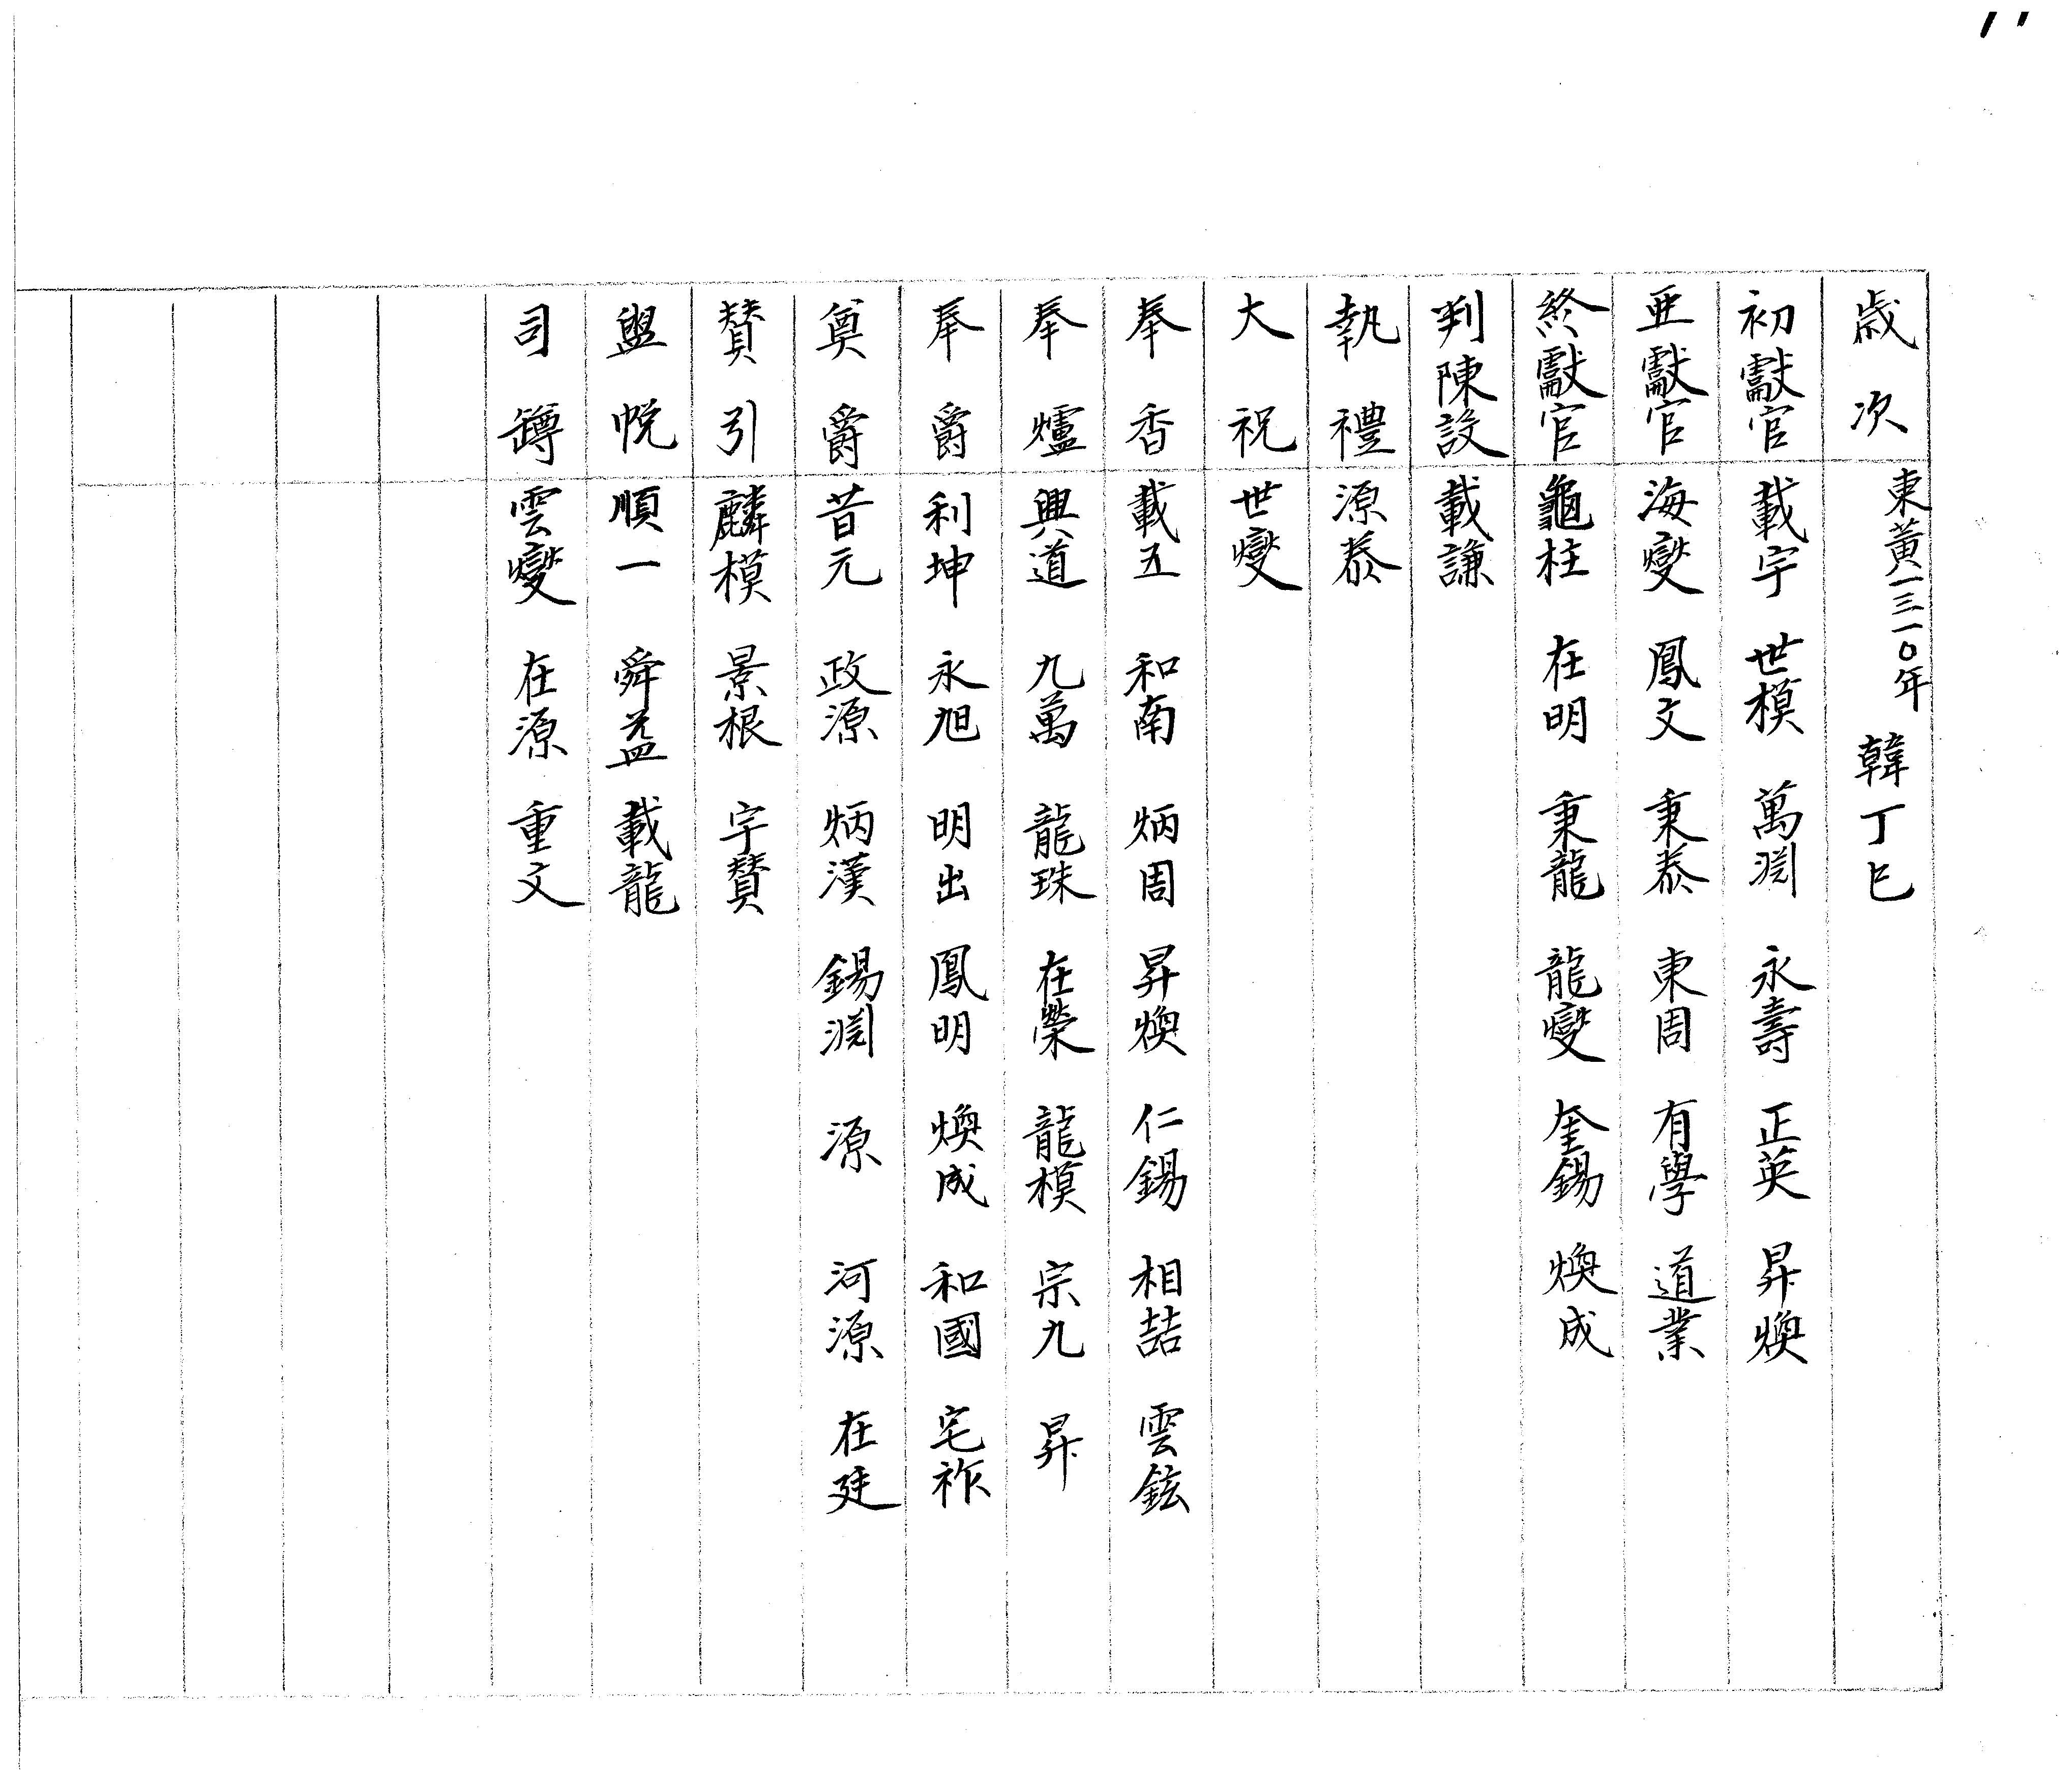 歲次 東黃一三一〇年 韓丁巳
初獻官 載宇 世模 萬淵 永壽 正英 昇煥
亜獻官 海燮 鳳文 秉泰 東周 有學 道業
終獻官 龜柱 在明 秉龍 龍燮 奎錫 煥成
判陳設 載謙
執禮 源泰
大祝 世燮
奉香 載五 和南 炳周 昇煥 仁錫 相喆 雲鉉
奉爐 興道 九萬 龍珠 在榮 龍模 宗九 昇
奉爵 利坤 永旭 明出 鳳明 煥成 和國 宅祚
奠爵 昔元 政源 炳漢 錫淵 源 河源 在廷
賛引 麟模 景根 宇賛
盥帨 順一 舜益 載龍
司罇 雲燮 在源 重文